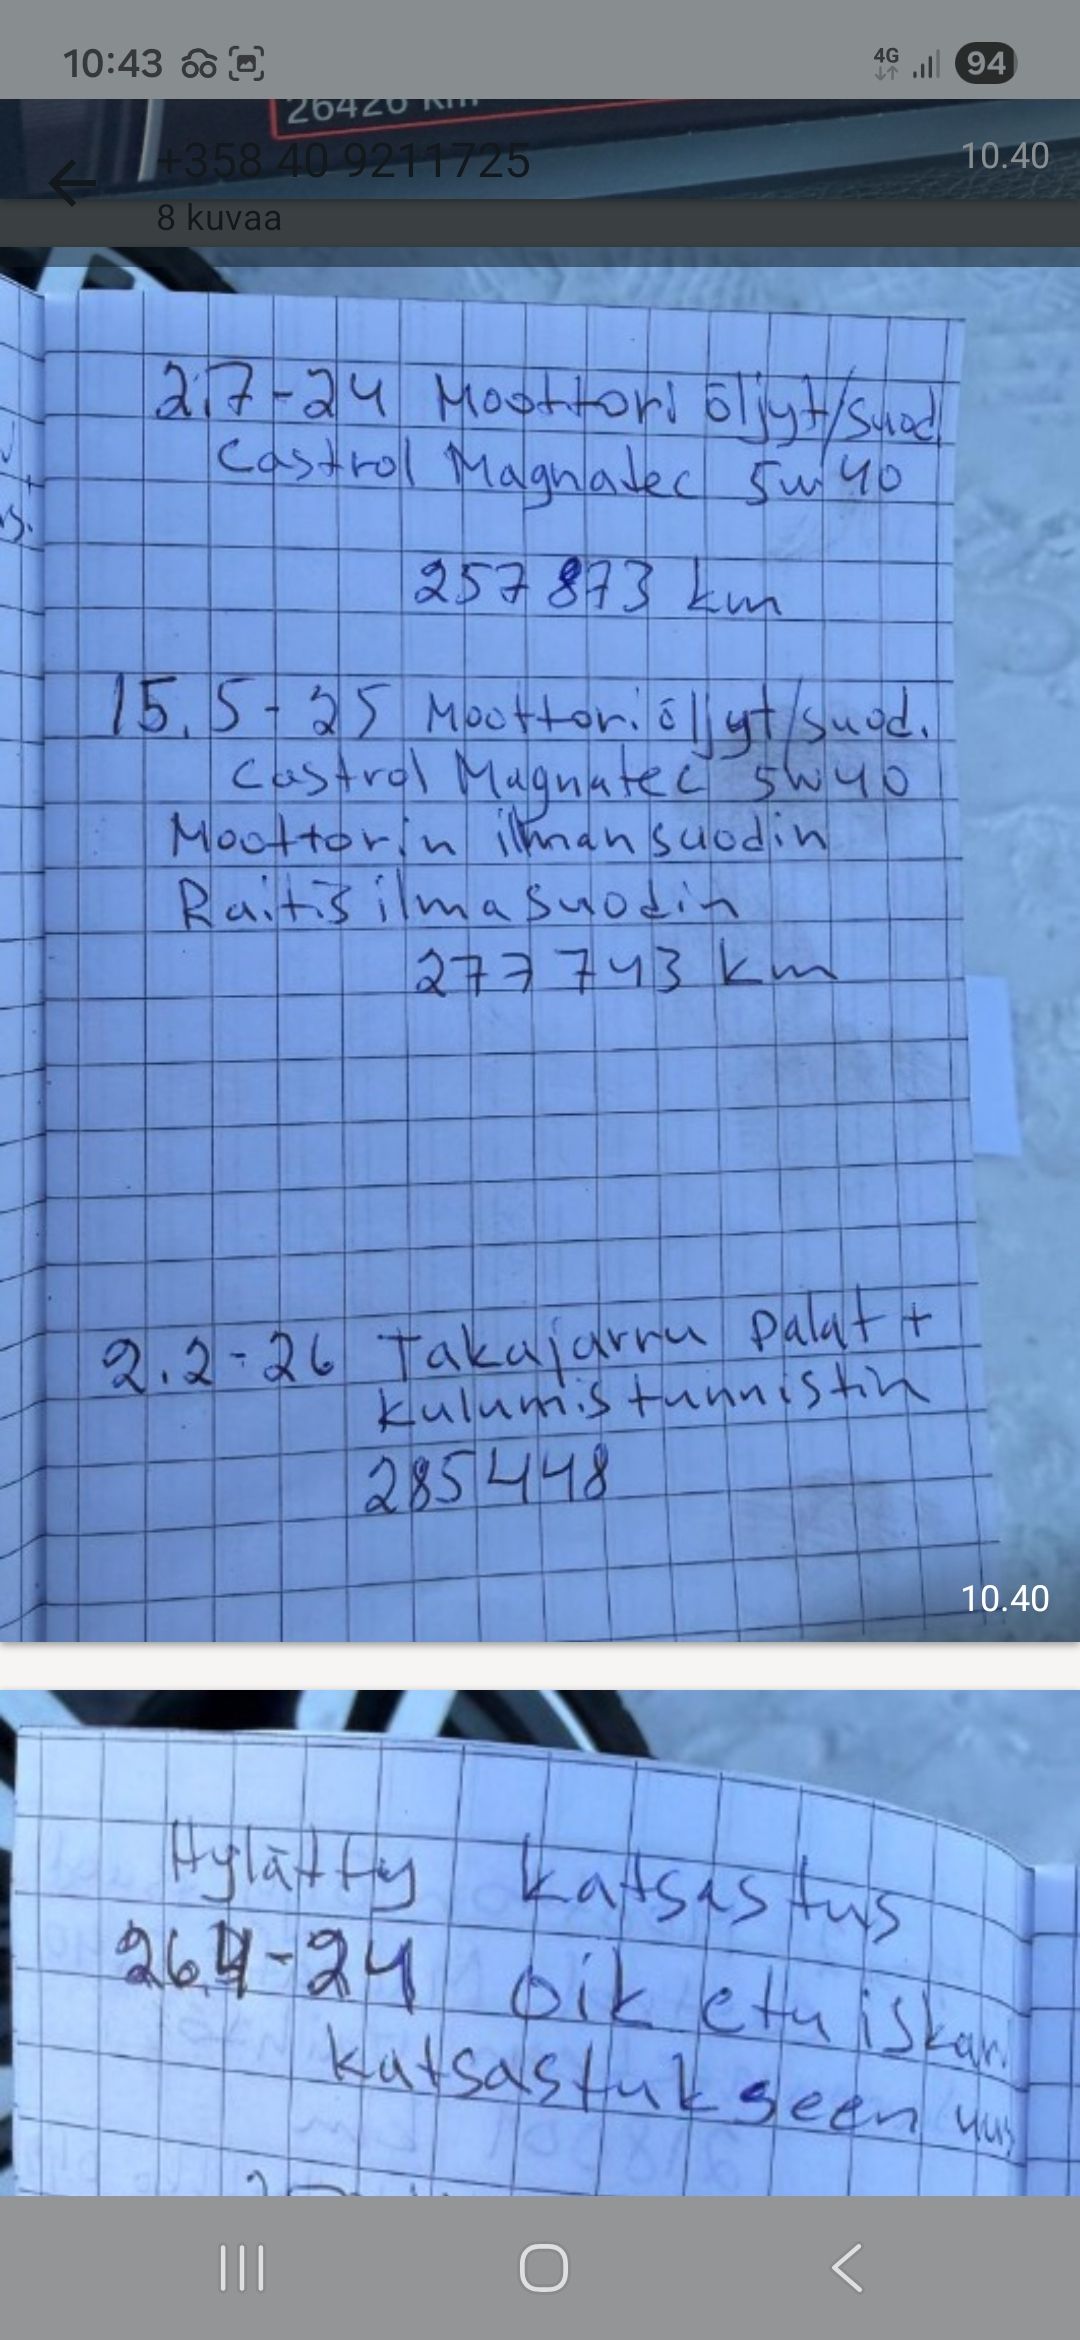 10:43
4G
94
+358 40 9211725
10.40
8 kuvaa
2.7-24 Moottori öljyt/suod
Castrol Magnatec 5w40
257 873 km
15.5-25 Moottoriöljyt/suod.
Castrol Magnatec 5w40
Moottorin ilmansuodin
Raitisilmasuodin
277 743 km
2.2-26 Takajarru palat +
kulumistunnistin
285448
10.40
Hylätty katsastus
26.4-24 oik etu iskan
katsastukseen